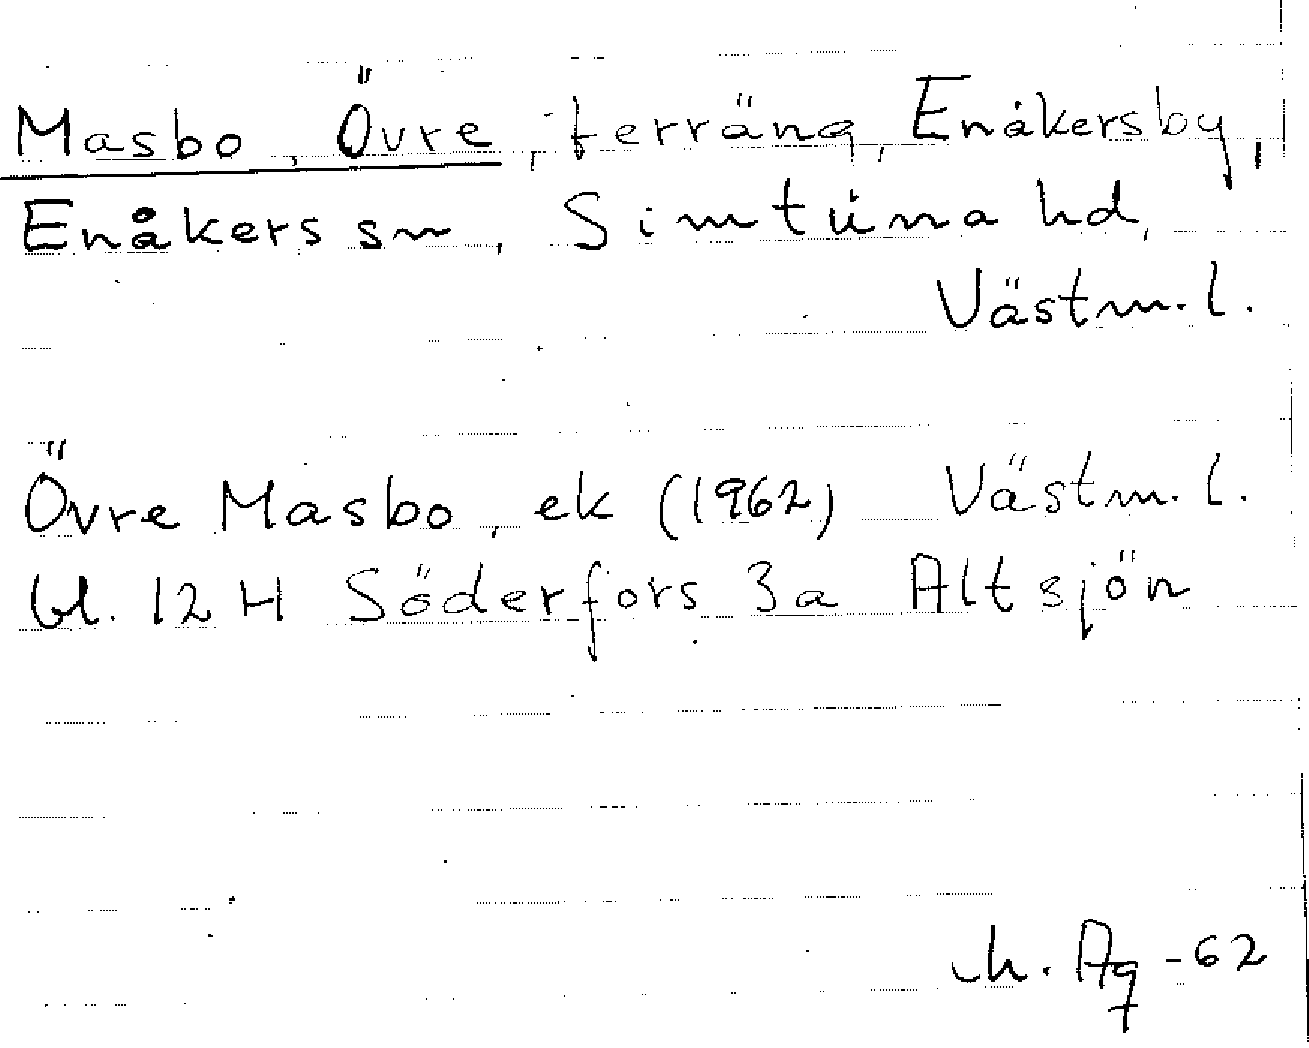 Masbo, Övre, terräng, Enåkersby,
Enåkers sn, Simtuna hd,
Västm. l.
Övre Masbo, ek (1962) Västm. l.
bl. 12 H Söderfors 3a Altsjön
-62